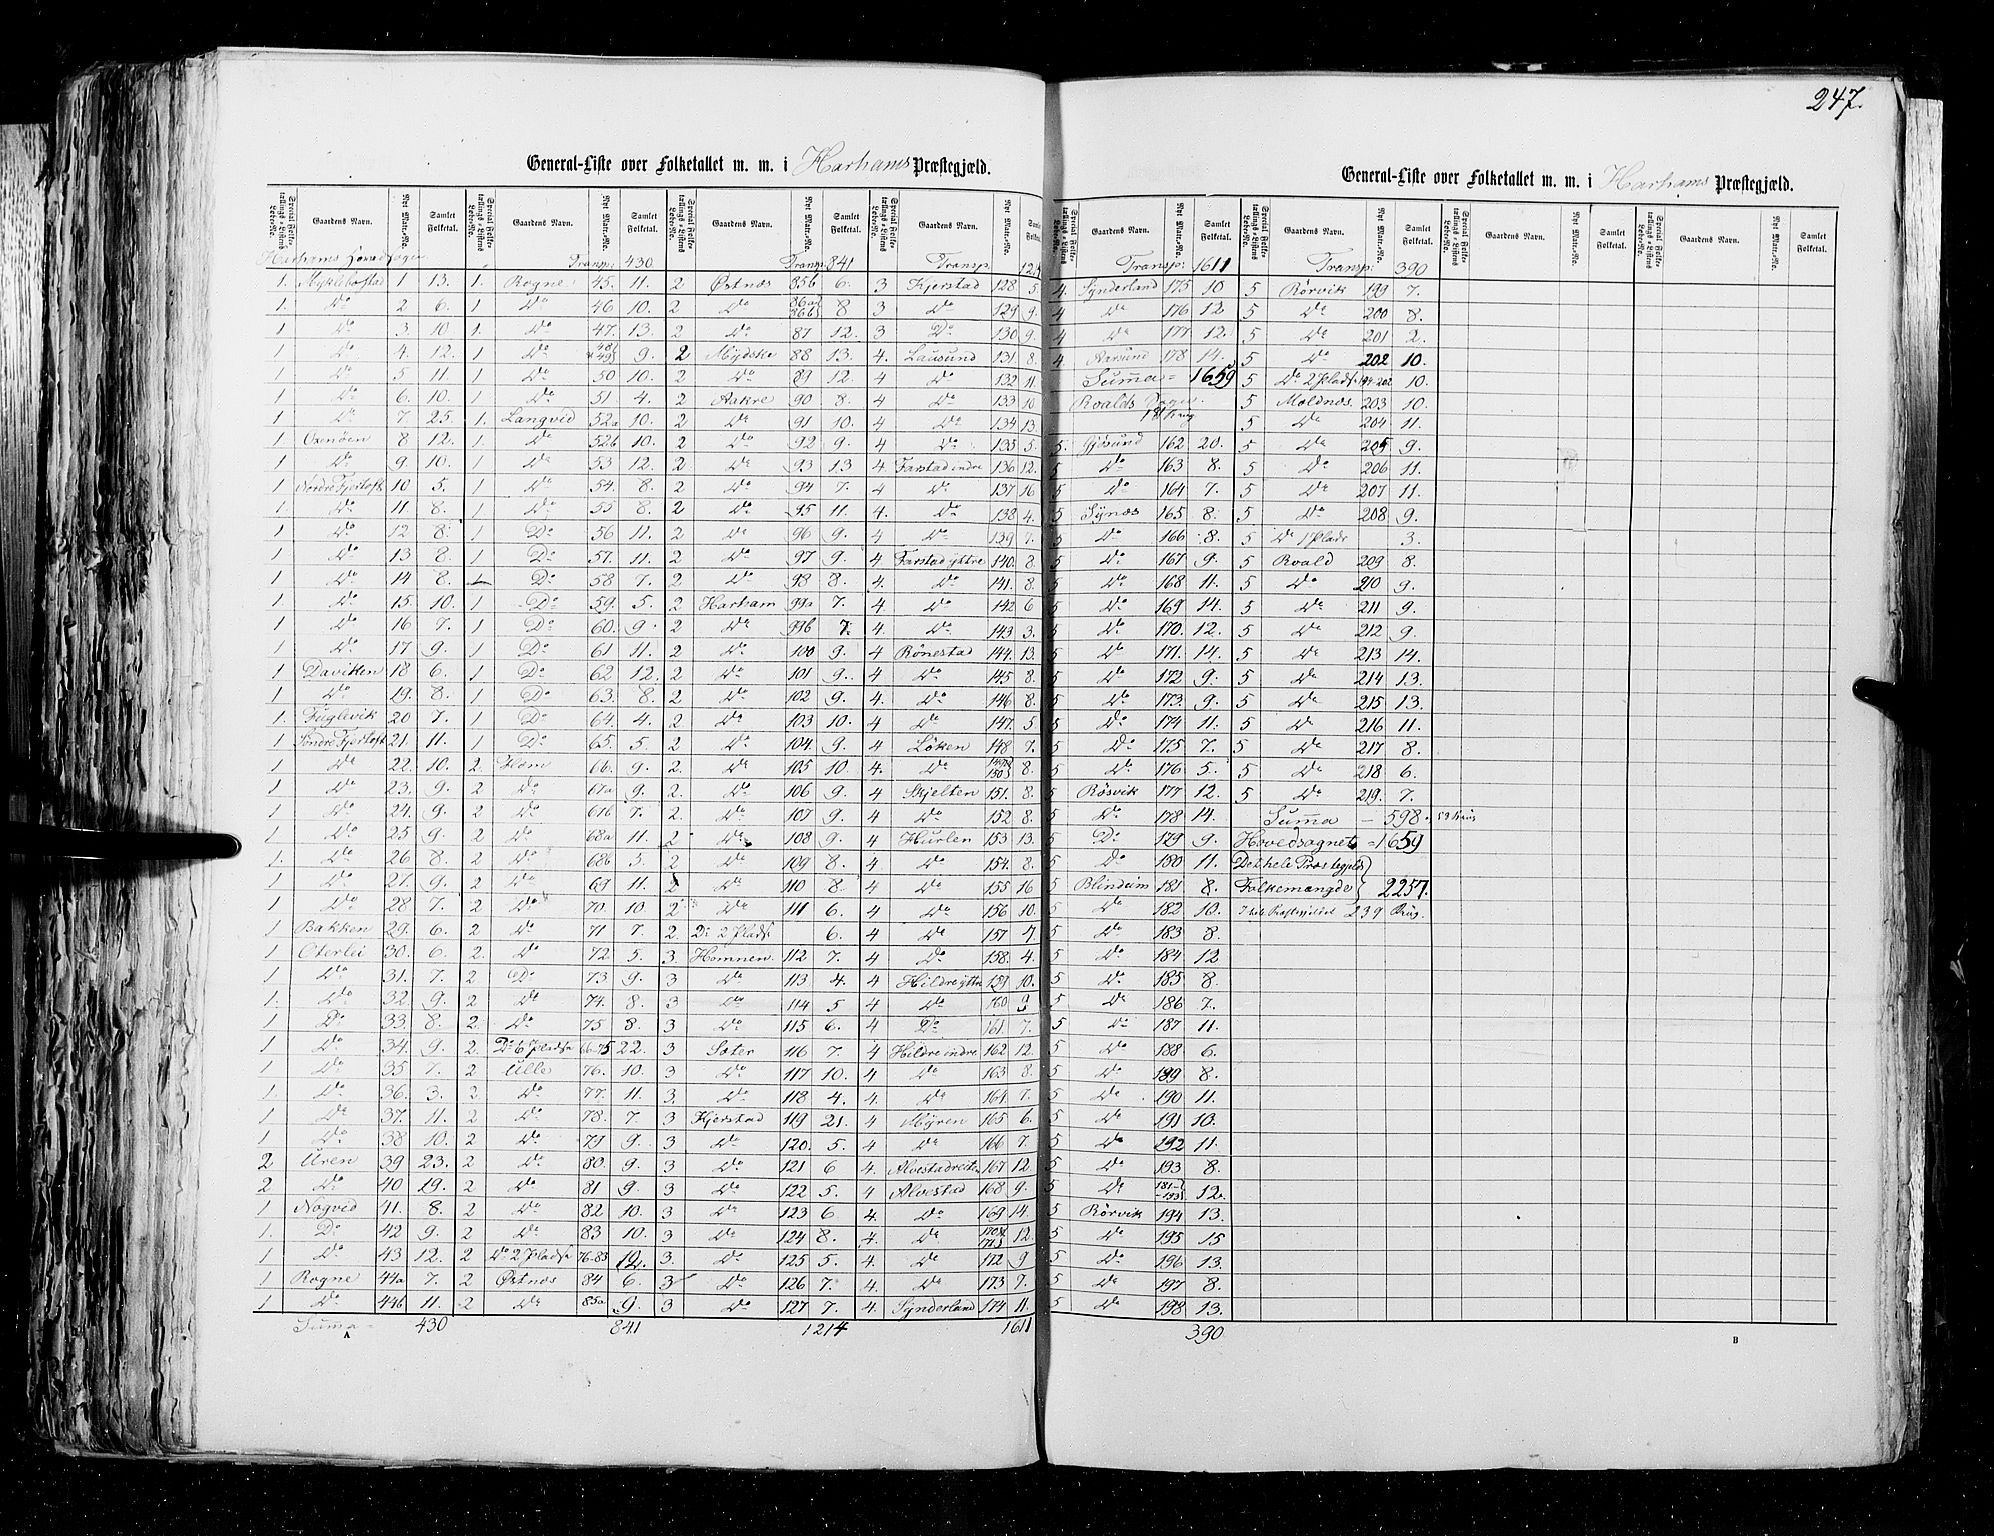 247.
General-Liste over Folketallet m. m. i Harhams Præstegjæld.
Special Folketællings-Listens Løbe-No. Gaardens Navn. Nyt Matr.-No. Samlet Folketal.
Harhams Hovedsogn
1. Myklebostad 1 13.
1. Do 2 6.
1 Do 3 10.
1 Do 4. 12.
1 Do 5 11.
1 Do 6. 10.
1 Do 7 25.
1 Oxenöen 8 12.
1 Do 9. 10.
1 Nordre Fjertoft 10 5.
1 Do 11 8.
1 Do 12 8.
1 Do 13 8.
1 Do 14 8.
1 Do 15. 10.
1 Do 16 7.
1 Do 17 9.
1 Daviken 18 6.
1 Do 19. 8.
1. Fuglevik 20 7.
1 Söndre Fjertoft 21. 11.
1 Do 22. 10.
1 Do 23. 9.
1 Do 24. 9.
1 Do 25 9.
1. Do 26 8.
1 Do 27. 9.
1 Do 28. 7.
1 Bakken 29. 6.
1 Oterlei 30. 6.
1 Do 31. 7.
1. Do 32. 9.
1 Do 33. 8.
1 Do 34. 9.
1 Do 35 7.
1 Do 36. 3.
1 Do 37. 11.
1 Do 38 10.
2 Uren 39 23.
2 Do 40 19.
1 Nogved 41. 8.
1. Do 42 9.
1 Do 43 12.
1 Rogne 44a 7.
1 Do 44b 11.
Suma = 430
A
Special Folketællings-Listens Løbe-No. Gaardens Navn. Nyt Matr.-No. Samlet Folketal.
Transp: 430.
1. Rogne 45. 11.
1 Do 46 10.
1. Do 47. 13.
1 Do 48 49 9.
1 Do 50 10.
1 Do 51 4.
1. Langvid 52a 10.
1 Do 52b 10.
1 Do 53 12.
1 Do 54. 8.
1 Do 55 8.
1 Do 56 11.
1 Do 57. 11.
1 Do 58 7.
1 Do 59. 5.
1 Do 60. 9.
1 Do 61 11.
1 Do 62 12.
1 Do 63. 8.
1 Do 64. 4.
1 Do 65. 5.
2. Ham 66. 9.
2 Do 67a 9.
2 Do 67b 7.
2 Do 68a 11.
2 Do 68b 5.
2 Do 69 11.
2 Do 70. 10.
2 Do 71 7.
2. Do 72. 5.
2 Do 73 9.
2 Do 74. 8.
2. Do 75 8.
2. Do 6 Pladse 66-75 22.
2 Ulle 76. 10.
2 Do 77. 11.
2 Do 78. 7.
2 Do 79 9.
2 Do 80. 9.
2 Do 81 9.
2 Do 82 10.
2 Do 83 10.
2 Do 2 Pladse 76-83 12.
2 Östnæs 84 6.
2 Do 85a 9.
841
Special Folketællings-Listens Løbe-No. Gaardens Navn. Nyt Matr.-No. Samlet Folketal.
Transp: 841
2 Östnæs 85b 6.
2 Do 86a 86b 8
2 Do 87 12.
2 Mijdske 88 13.
2 Do 89 12.
2 Aakre 90 8.
2 Do 91 10.
2 Do 92 9.
2 Do 93 13
2 Do 94 7.
2 Do 95 11.
2 Do 96 9.
2 Do 97 9.
2 Do 98 8.
2 Harham 99a 7.
2 Do 99b 7.
2 Do 100 9.
2 Do 101 9.
2 Do 102 9.
2 Do 103 10.
2 Do 104. 9.
2. Do 105 10.
2. Do 106 9.
2. Do 107 9.
2 Do 108 9.
2 Do 109 8.
2 Do 110 8.
2 Do 111 6.
2. Do 2 Pladse 6.
3. Hamnen 112 7.
3 Do 113 4.
3 Do 114 5
3 Do 115 6.
3 Sæter 116 7.
3 Do 117 10.
3. Do 118 4.
3 Kjerstad 119 21.
3 Do 120. 5.
3 Do 121 6
3 Do 122 5.
3 Do 123 6
3 Do 124 8.
3. Do 125 5.
3 Do 126 7.
3 Do 127 7.
1214
Special Folketællings-Listens Løbe-No. Gaardens Navn. Nyt Matr.-No. Samlet Folketal.
Transp. 1214
3 Kjerstad 128 5.
3 Do 129 9.
3 Do 130 9.
4. Lausund 131 8.
4 Do 132 11.
4 Do 133 10
4 Do 134 13.
4 Do 135 5.
4 Farstad indre 136 12.
4 Do 137 16
4. Do 138 4.
4 Do 139 7.
4 Farstad yttre 140. 8.
4. Do 141. 8.
4. Do 142 6
4. Do 143 3.
4 Rönestad 144. 13.
4 Do 145 8.
4. Do 146 8.
4 Do 147. 5
4 Löken 148 7.
4. Do 149 150 8.
4 Skjelten 151. 8.
4 Do 152 8.
4 Hurlen 153 13.
4 Do 154. 8.
4 Do 155 16
4 Do 156 10.
4 Do 157 7
4 Do 158. 4.
4 Hildre yttre 159 10.
4 Do 160 9
4 Do 161. 7.
4 Hildre indre 162 12.
4 Do 163 8.
4. Do 164 7.
4 Myren 165 6.
4 Do 166 7.
4. Alvestadreiten 167 12
4 Alvestad 168 9.
4. Do 169 14.
4. Do 170 171 12.
4. Do 172 9
4. Do 173 7.
4. Synderland 174 11.
1611
General-Liste over Folketallet m. m. i Harhams Præstegjæld.
Special Folketællings-Listens Løbe-No. Gaardens Navn. Nyt Matr.-No. Samlet Folketal.
Transp: 1611
4. Synderland 175 10
4 Do 176 12
4 Do 177 12.
4 Aarsund 178 14.
Suma = 1659
Roalds Sogn.
5. Gjösund 162 20.
5 Do 163 8.
5 Do 164 7.
5 Synæs 165 8.
5 Do 166 8.
5 Do 167 9.
5 Do 168 11.
5 Do 169 14.
5 Do 170. 12.
5 Do 171. 14.
5 Do 172 9.
5 Do 173. 9.
5 Do 174 11.
5 Do 175 7.
5 Do 176 5.
5 Rösvik 177 12.
5 Do 178 14.
5 Do 179 9.
5 Do 180 11.
5 Blindeim 181 8.
5 Do 182 10.
5 Do 183 8.
5 Do 184 12
5 Do 185 8.
5 Do 186 7.
5 Do 187 11.
5 Do 188 6.
5 Do 189 8.
5 Do 190 11.
5 Do 191 10.
5 Do 192 11.
5 Do 193 8.
5 Do 181-193 12.
5 Rörvik 194 13.
5 Do 195 15
5 Do 196 13.
5 Do 197 8.
5 Do 198 13.
390
Special Folketællings-Listens Løbe-No. Gaardens Navn. Nyt Matr.-No. Samlet Folketal.
Transp: 390
5 Rörvik 199 7.
5 Do 200 8.
5 Do 201 2.
5 Do 202 10.
5 Do 2 Pladse 194-202 10.
5 Moldnæs 203 10.
5 Do 204 11.
5 Do 205 9.
5 Do 206 11.
5 Do 207 11.
5 Do 208 9.
5 Do 1 Plads 3.
5 Roald 209 8.
5 Do 210 9.
5 Do 211 9.
5 Do 212 9.
5 Do 213 14.
5 Do 214 13.
5 Do 215 13.
5 Do 216 11.
5 Do 217 8.
5 Do 218 6.
5 Do 219. 7.
Suma - 598.
Hovedsognet = 1659
Dethele Præstegjelds
Folkemængde 2257.
239
Special Folketællings-Listens Løbe-No. Gaardens Navn. Nyt Matr.-No. Samlet Folketal.
Special Folketællings-Listens Løbe-No. Gaardens Navn. Nyt Matr.-No. Samlet Folketal.
B